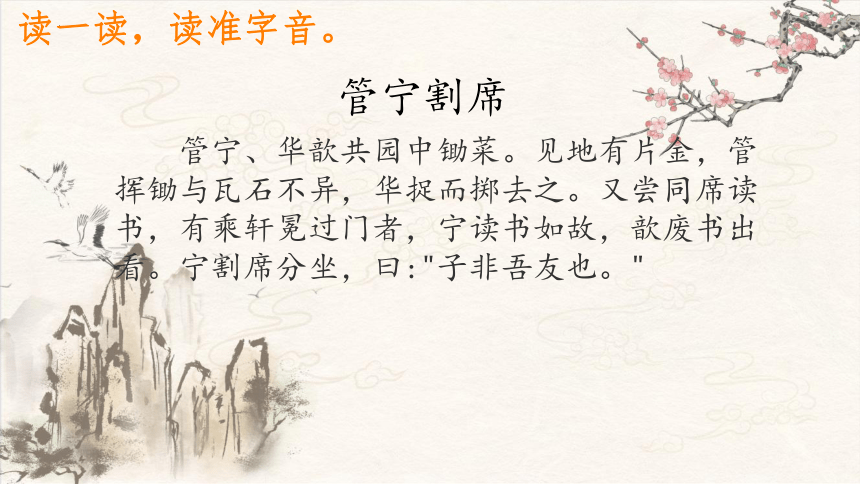 读一读，读准字音。
管宁割席
管宁、华歆共园中锄菜。见地有片金，管
挥锄与瓦石不异，华捉而掷去之。又尝同席读
书，有乘轩冕过门者，宁读书如故，歆废书出
看。宁割席分坐，曰:"子非吾友也。"